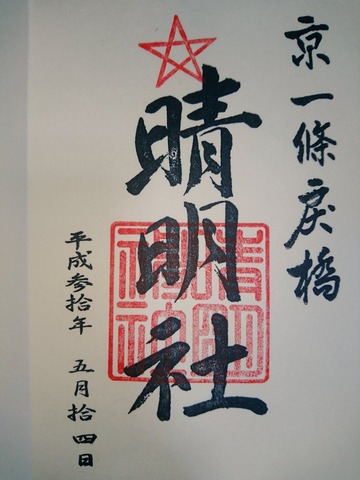 京一條戻橋
晴明社
晴明神社
平成参拾年 五月拾四日